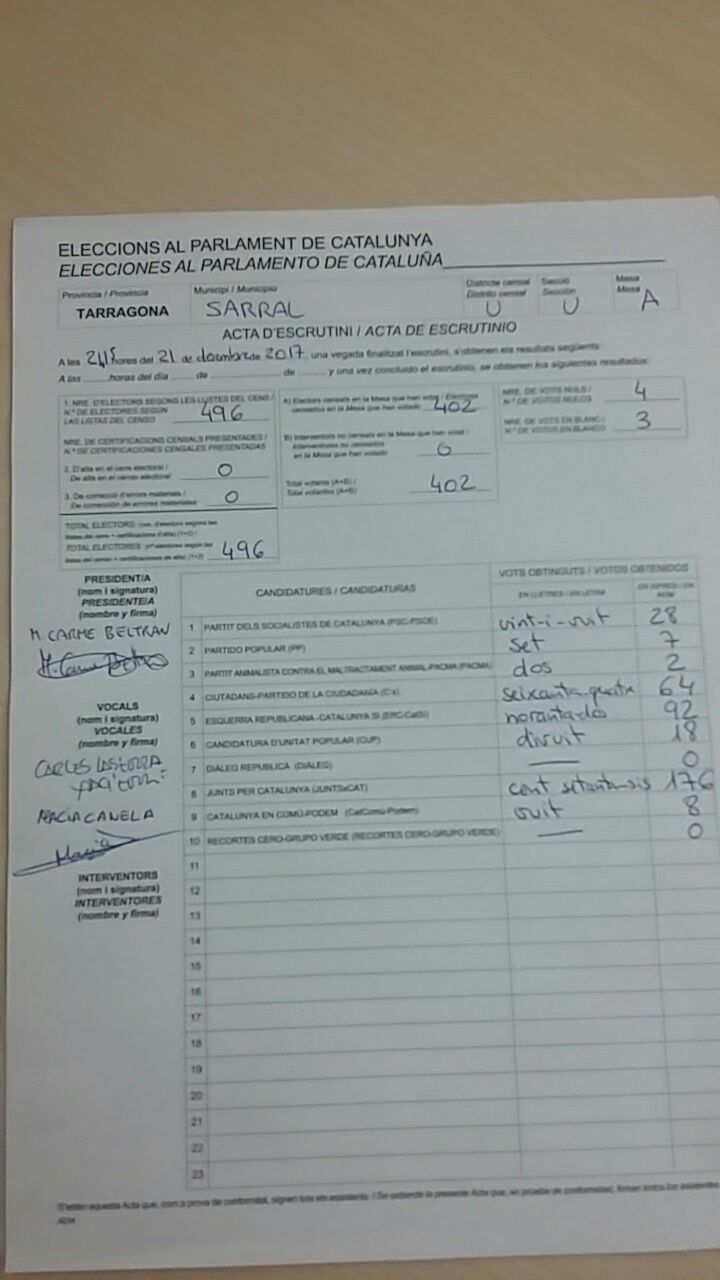 ELECCIONS AL PARLAMENT DE CATALUNYA
ELECCIONES AL PARLAMENTO DE CATALUÑA
Provincia / Provincia
TARRAGONA
Municipi / Municipio
SARRAL
Districte censal
Distrito censal
U
Secció
Sección
U
Mesa
Mesa
A
ACTA D'ESCRUTINI / ACTA DE ESCRUTINIO
A les 21,15 hores del 21 de desembre de 2017, una vegada finalitzat l'escrutini, s'obtenen els resultats següents:
A las ........ horas del día ........ de ........ de ........ y una vez concluido el escrutinio, se obtienen los siguientes resultados:
1. NRE. D'ELECTORS SEGONS LES LLISTES DEL CENS /
N.º DE ELECTORES SEGÚN
LAS LISTAS DEL CENSO
496
NRE. DE CERTIFICACIONS CENSALS PRESENTADES /
N.º DE CERTIFICACIONES CENSALES PRESENTADAS
2. D'alta en el cens electoral /
De alta en el censo electoral
0
3. De correcció d'errors materials /
De corrección de errores materiales
0
TOTAL ELECTORS: (nre. d'electors segons les
llistes del cens + certificacions d'alta) (1+2) /
TOTAL ELECTORES: (nº electores según las
listas del censo + certificaciones de alta) (1+2)
496
A) Electors censats en la Mesa que han votat / Electores
censados en la Mesa que han votado
402
B) Interventors no censats en la Mesa que han votat /
Interventores no censados
en la Mesa que han votado
0
Total votants (A+B) /
Total votantes (A+B)
402
NRE. DE VOTS NULS /
N.º DE VOTOS NULOS
4
NRE. DE VOTS EN BLANC /
N.º DE VOTOS EN BLANCO
3
PRESIDENT/A
(nom i signatura)
PRESIDENTE/A
(nombre y firma)
M. CARME BELTRAN
VOCALS
(nom i signatura)
VOCALES
(nombre y firma)
CARLES
MACIÀ CANELA
INTERVENTORS
(nom i signatura)
INTERVENTORES
(nombre y firma)
CANDIDATURES / CANDIDATURAS
VOTS OBTINGUTS / VOTOS OBTENIDOS
EN LLETRES / EN LETRA
1 PARTIT DELS SOCIALISTES DE CATALUNYA (PSC-PSOE) vint-i-vuit 28
2 PARTIDO POPULAR (PP) set 7
3 PARTIT ANIMALISTA CONTRA EL MALTRACTAMENT ANIMAL-PACMA (PACMA) dos 2
4 CIUTADANS-PARTIDO DE LA CIUDADANÍA (C's) seixanta-quatre 64
5 ESQUERRA REPUBLICANA-CATALUNYA SÍ (ERC-CatSí) noranta-dos 92
6 CANDIDATURA D'UNITAT POPULAR (CUP) divuit 18
7 DIÀLEG REPUBLICÀ (DIÀLEG) — 0
8 JUNTS PER CATALUNYA (JUNTSxCAT) cent setanta-sis 176
9 CATALUNYA EN COMÚ-PODEM (CatComú-Podem) vuit 8
10 RECORTES CERO-GRUPO VERDE (RECORTES CERO-GRUPO VERDE) — 0
11
12
13
14
15
16
17
18
19
20
21
22
23
S'estén aquesta Acta que, com a prova de conformitat, signen tots els assistents. / Se extiende la presente Acta que, en prueba de conformidad, firman todos los asistentes
AEM